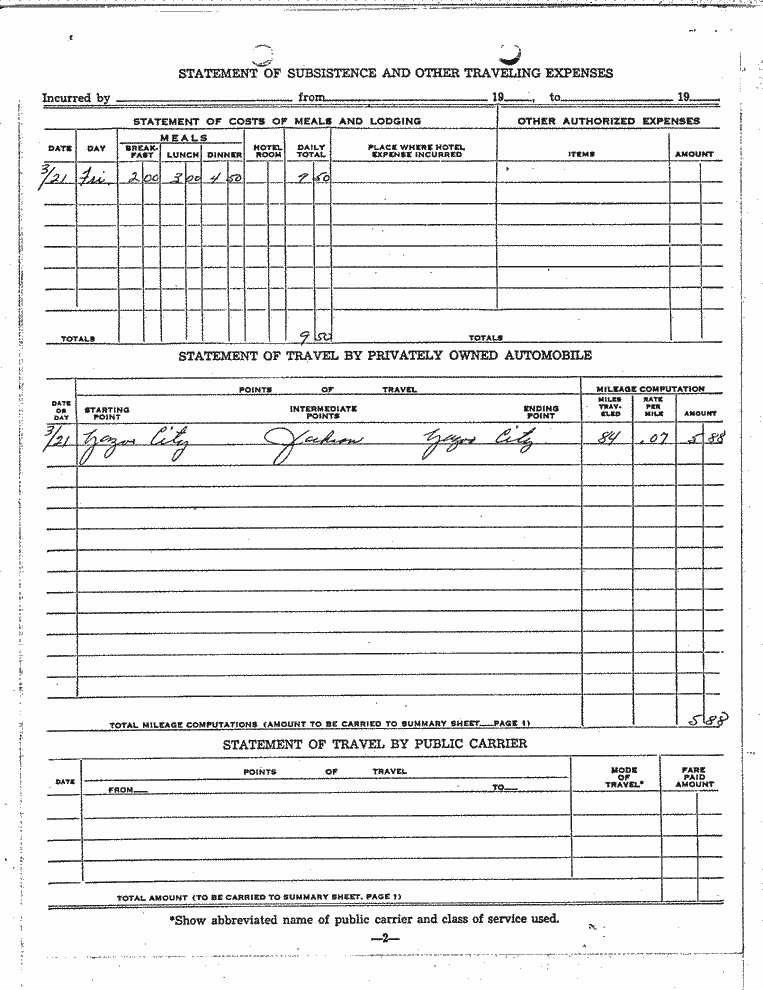 STATEMENT OF SUBSISTENCE AND OTHER TRAVELING EXPENSES
Incurred by from 19 , to 19
STATEMENT OF COSTS OF MEALS AND LODGING OTHER AUTHORIZED EXPENSES
MEALS
DATE DAY BREAK-FAST LUNCH DINNER HOTEL ROOM DAILY TOTAL PLACE WHERE HOTEL EXPENSE INCURRED ITEMS AMOUNT
3/21 Fri. 2 00 3 00 4 50 9 50
TOTALS 9 50 TOTALS
STATEMENT OF TRAVEL BY PRIVATELY OWNED AUTOMOBILE
POINTS OF TRAVEL MILEAGE COMPUTATION
DATE OR DAY STARTING POINT INTERMEDIATE POINTS ENDING POINT MILES TRAV-ELED RATE PER MILE AMOUNT
3/21 Yazoo City Jackson Yazoo City 84 .07 5 88
TOTAL MILEAGE COMPUTATIONS (AMOUNT TO BE CARRIED TO SUMMARY SHEET—PAGE 1) 5 88
STATEMENT OF TRAVEL BY PUBLIC CARRIER
DATE POINTS OF TRAVEL MODE OF TRAVEL* FARE PAID AMOUNT
FROM— TO—
TOTAL AMOUNT (TO BE CARRIED TO SUMMARY SHEET, PAGE 1)
*Show abbreviated name of public carrier and class of service used.
—2—